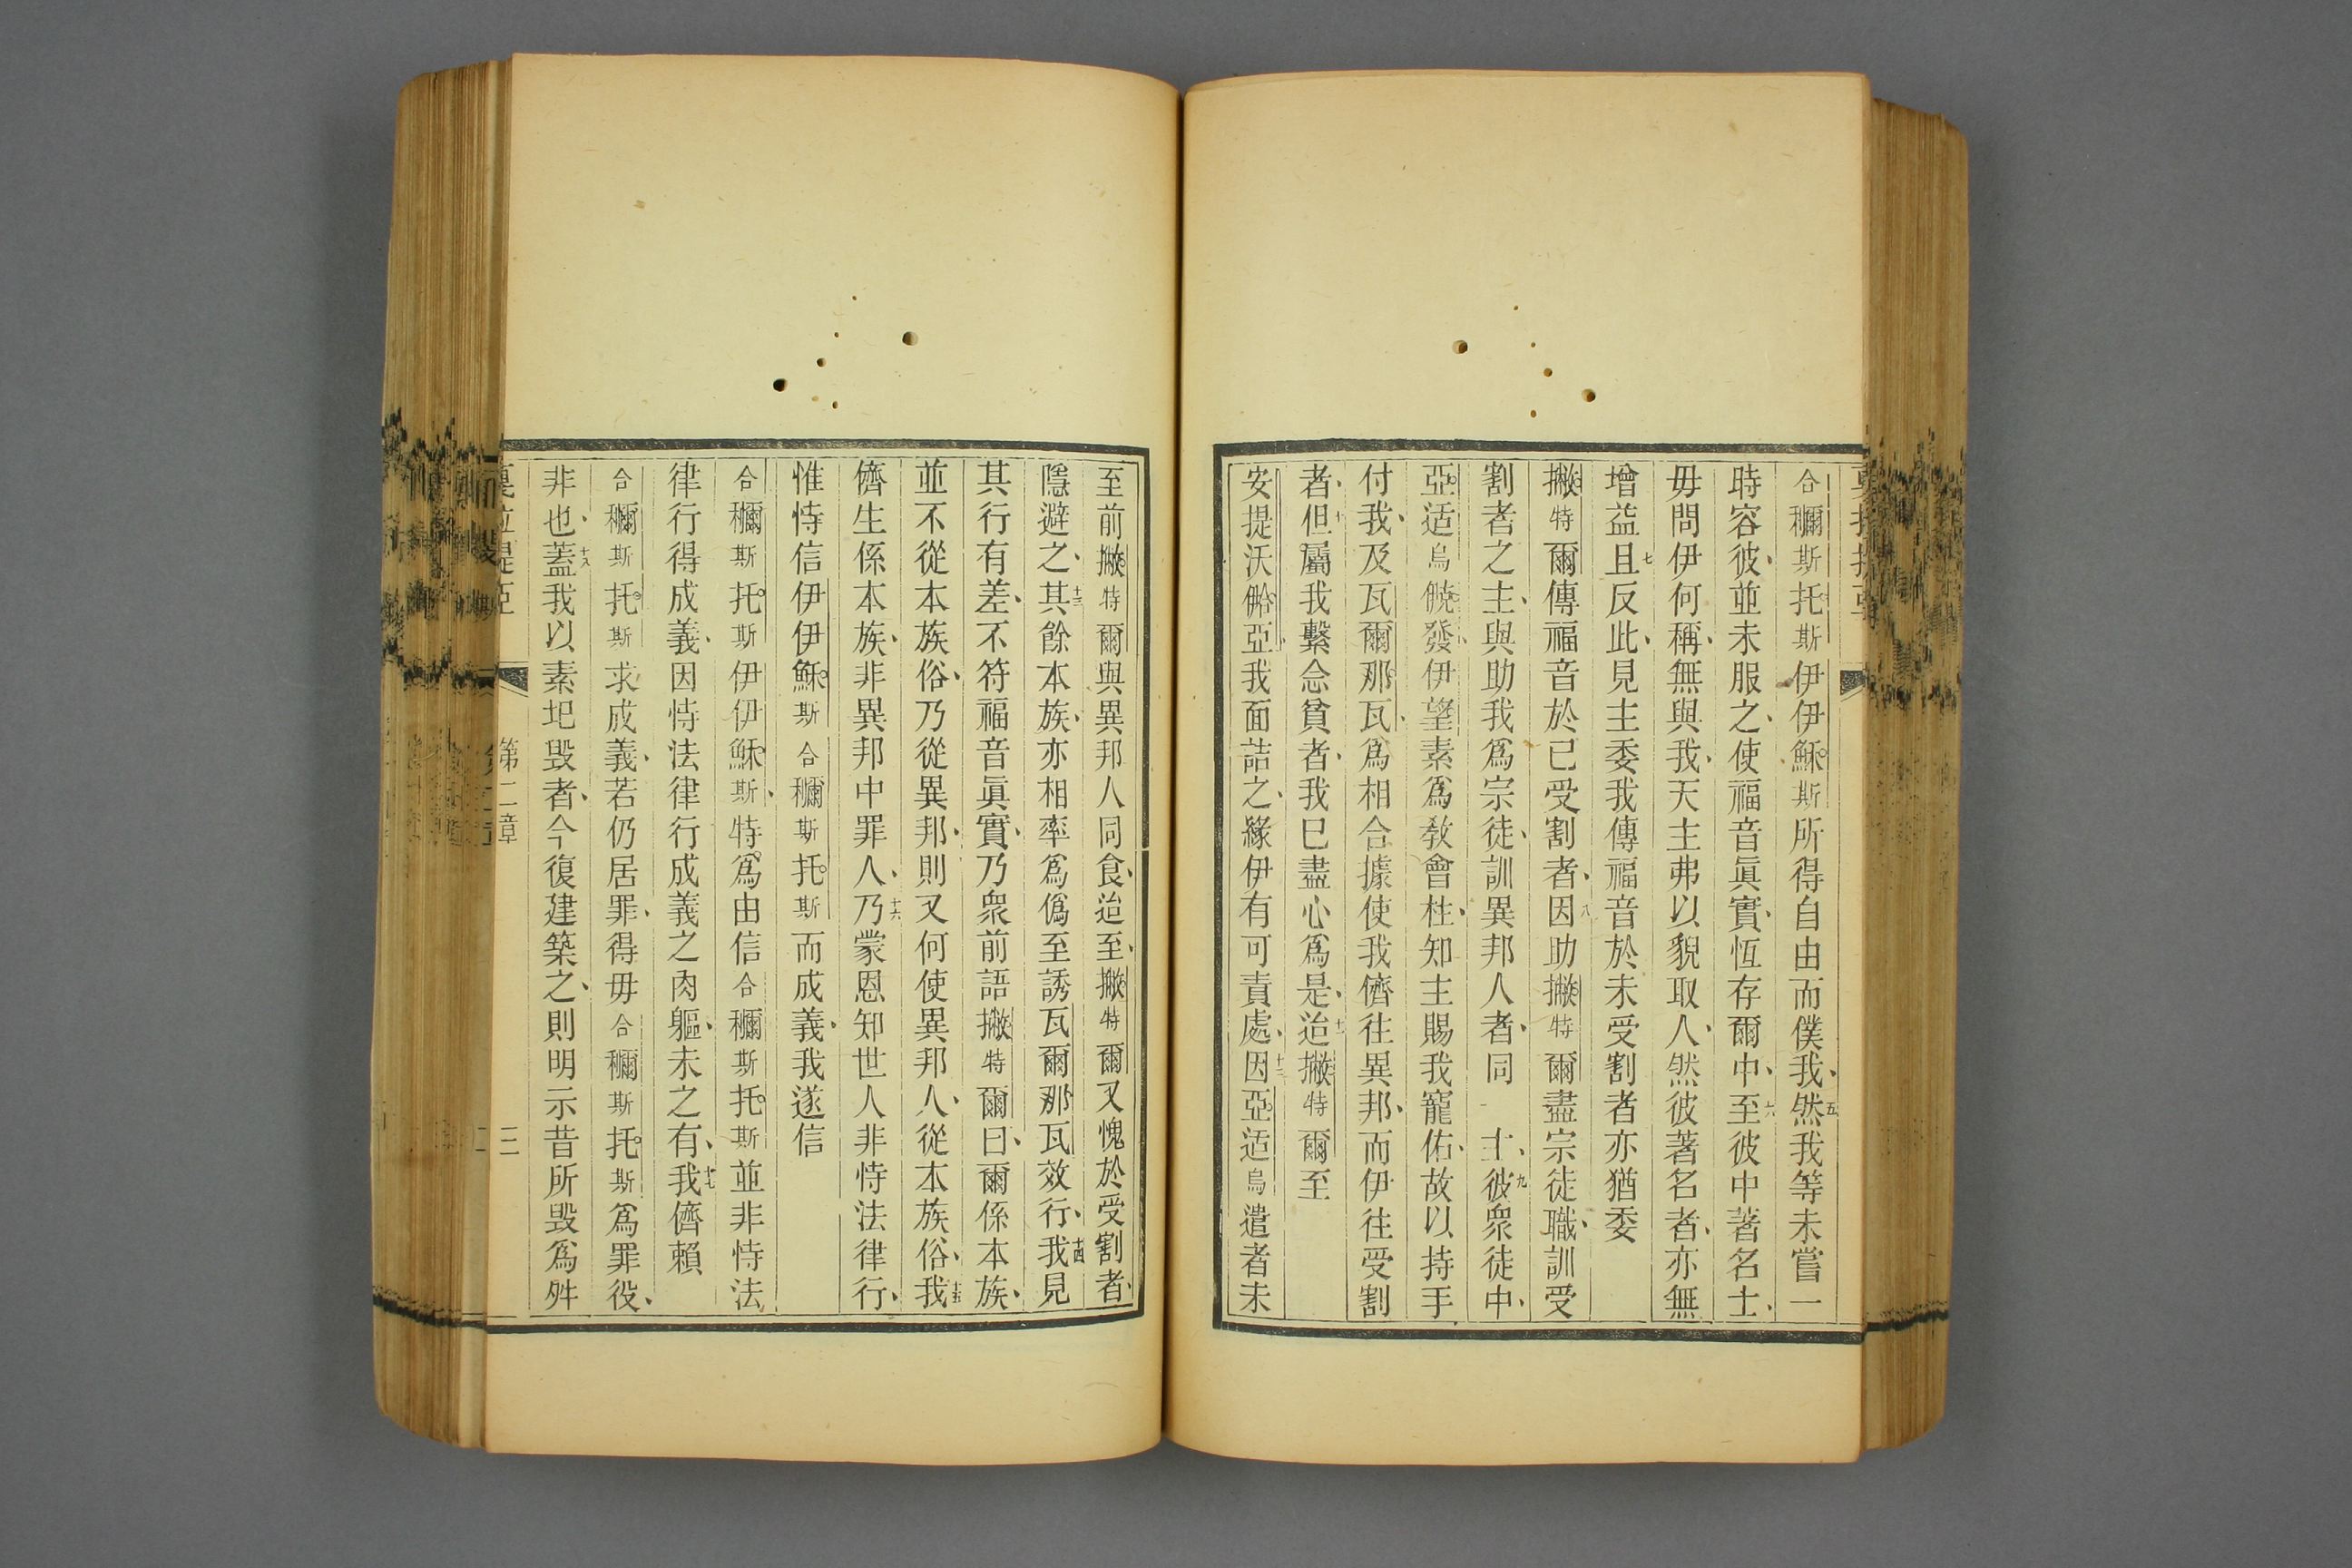 合𥡝斯托斯伊伊穌斯所得自由而僕我、五然我等未嘗一
時容彼、並未服之、使福音眞實、恆存爾中、六至彼中著名士、
毋問伊何稱、無與我、天主弗以貌取人、然彼著名者、亦無
增益七且反此、見主委我傳福音於未受割者亦猶委
撇特爾傳福音於已受割者、八因助撇特爾盡宗徒職、訓受
割者之主、與助我爲宗徒、訓異邦人者、同一士、九彼眾徒中、
亞适烏、發、伊望素爲敎會柱、知主賜我寵佑、故以持手
付我、及瓦爾那瓦、爲相合據使我儕往異邦、而伊往受割
者、十但屬我繫念貧者、我巳盡心爲是、十一迨撇特爾至
安提沃亞、我面詰之、緣伊有可責處、十二因亞适烏遣者未
至前撇特爾與異邦人同食、迨至、撇特爾又愧於受割者、
隱避之、十三其餘本族、亦相率爲僞至誘瓦爾那瓦效行、十四我見
其行有差、不符福音眞實、乃眾前語撇特爾曰、爾係本族、
並不從本族俗、乃從異邦、則又何使異邦人、從本族俗、十五我
儕生係本族、非異邦中罪人、十六乃蒙恩知世人非恃法律行、
惟恃信伊伊穌斯合𥡝斯托斯而成義、我遂信
合𥡝斯托斯伊伊穌斯、特爲由信合𥡝斯托斯並非恃法
律行得成義、因恃法律行成義之肉軀、未之有、十七我儕賴
合𥡝斯托斯求成義、若仍居罪、得毋合𥡝斯托斯爲罪役、
非也、十八蓋我以素圯毀者、今復建築之、則明示昔所毀爲舛
第二章
三